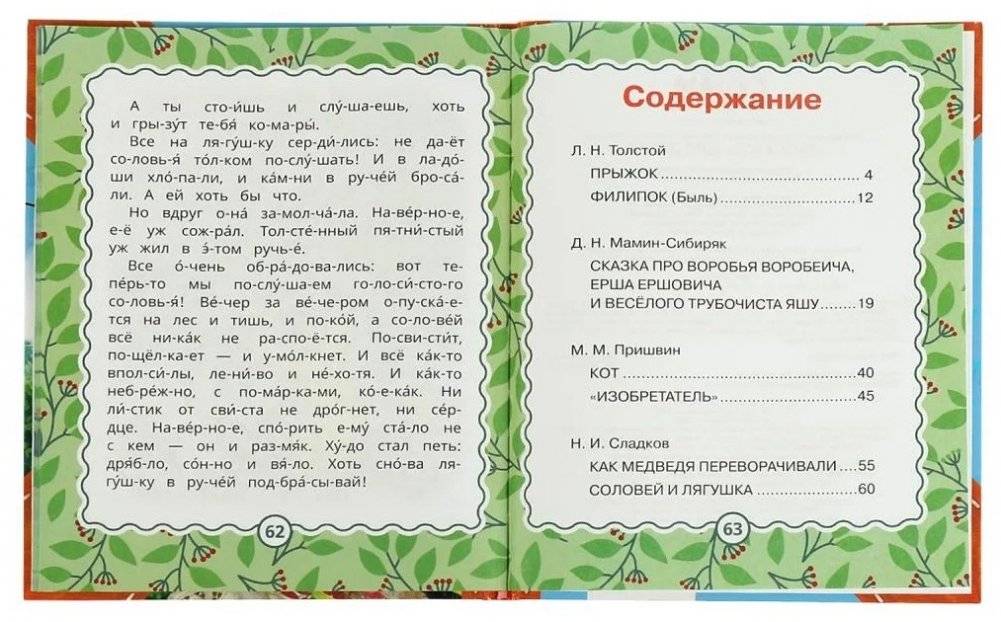 А ты сто-и́шь и слу́-ша-ешь, хоть
и гры-зу́т те-бя́ ко-ма-ры́.
Все на ля-гу́ш-ку сер-ди́-лись: не да-ёт
со-ловь-я́ то́л-ком по-слу́-шать! И в ла-до́-
ши хло́-па-ли, и ка́м-ни в ру-че́й бро-са́-
ли. А ей хоть бы что.
Но вдруг о-на́ за-мол-ча́-ла. На-ве́р-но-е,
е-ё уж сож-ра́л. Тол-сте́н-ный пят-ни́-стый
уж жил в э́-том ручь-е́.
Все о́-чень об-ра́-до-ва-лись: вот те-
пе́рь-то мы по-слу́-ша-ем го-ло-си́-сто-го
со-ловь-я́! Ве́-чер за ве́-че-ром о-пу-ска́-е-
тся на лес и тишь, и по-ко́й, а со-ло-ве́й
всё ни-ка́к не рас-по-ё-тся. По-сви-сти́т,
по-щёл-ка-ет — и у-мо́л-кнет. И всё ка́к-то
впол-си́-лы, ле-ни́-во и не́-хо-тя. И ка́к-то
неб-ре́ж-но, с по-ма́р-ка-ми, ко́-е-ка́к. Ни
ли́-стик от сви́-ста не дро́г-нет, ни се́р-
дце. На-ве́р-но-е, спо́-рить е-му́ ста́-ло не
с кем — он и раз-мя́к. Ху́-до стал петь:
дря́б-ло, со́н-но и вя́-ло. Хоть сно́-ва ля-
гу́ш-ку в ру-че́й под-бра́-сы-вай!
62
Содержание
Л. Н. Толстой
ПРЫЖОК..............................4
ФИЛИПОК (Быль)....................12
Д. Н. Мамин-Сибиряк
СКАЗКА ПРО ВОРОБЬЯ ВОРОБЕИЧА,
ЕРША ЕРШОВИЧА
И ВЕСЁЛОГО ТРУБОЧИСТА ЯШУ......19
М. М. Пришвин
КОТ..................................40
«ИЗОБРЕТАТЕЛЬ»....................45
Н. И. Сладков
КАК МЕДВЕДЯ ПЕРЕВОРАЧИВАЛИ....55
СОЛОВЕЙ И ЛЯГУШКА................60
63